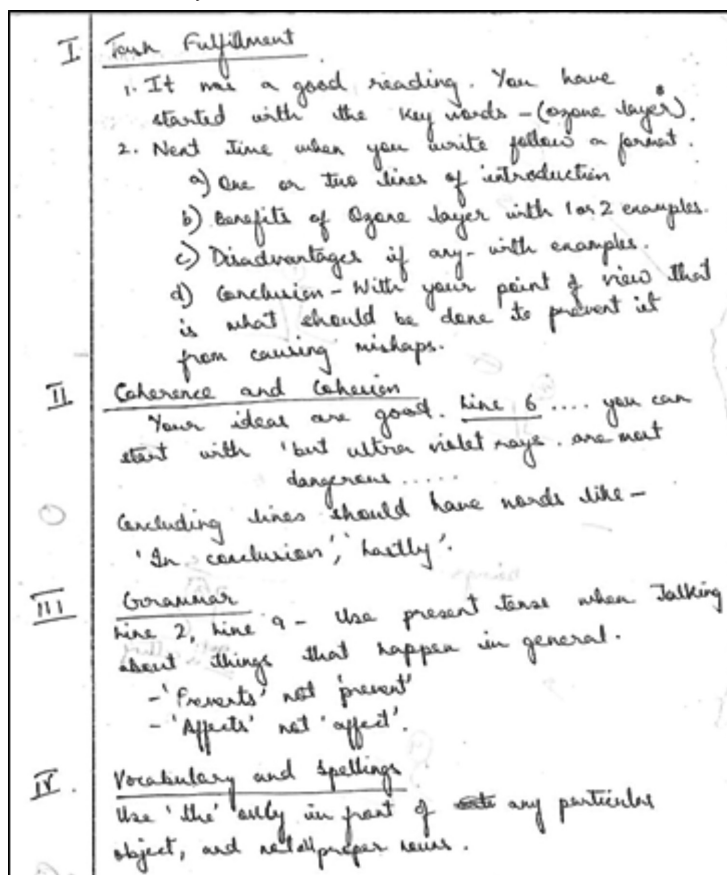 I Task Fulfillment
1. It was a good reading. You have
started with the key words - (ozone layer).
2. Next time when you write follow a format.
a) One or two lines of introduction
b) Benefits of Ozone layer with 1 or 2 examples.
c) Disadvantages if any - with examples.
d) Conclusion - With your point of view that
is what should be done to prevent it
from causing mishaps.
II Coherence and Cohesion
Your ideas are good. Line 6 .... you can
start with 'but ultra violet rays are most
dangerous .....
Concluding lines should have words like -
'In conclusion', 'Lastly'.
III Grammar
Line 2, Line 9 - Use present tense when Talking
about things that happen in general.
- 'Prevents' not 'prevent'
- 'Affects' not 'affect'.
IV. Vocabulary and Spellings
Use 'the' only in front of any particular
object, and not proper nouns.